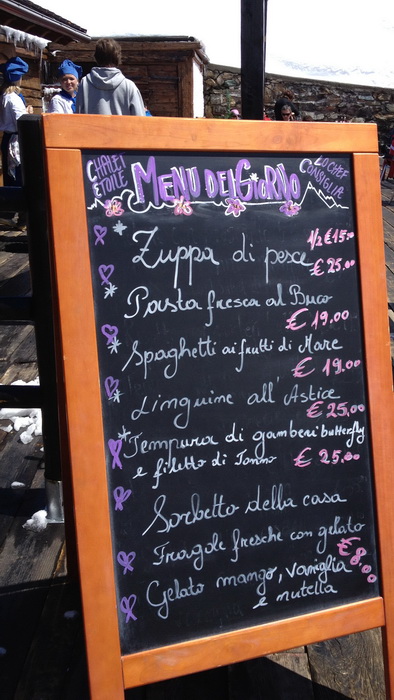 CHALET ETOILE
MENU DEL GIORNO
LO CHEF CONSIGLIA
Zuppa di pesce
1/2 € 15.00
€ 25.00
Pasta fresca al Buco
€ 19.00
Spaghetti ai frutti di Mare
€ 19.00
Linguine all'Astice
€ 25,00
Tempura di gamberi butterfly
e filetto di Tonno € 25.00
Sorbetto della casa
Fragole fresche con gelato
€ 8,00
Gelato mango, vaniglia
e nutella